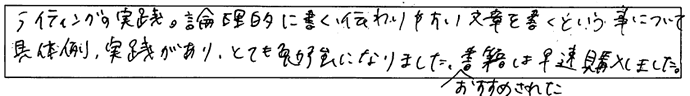 ライティングの実践。論理的に書く、伝わりやすい文章を書くという事について
具体例、実践があり、とても勉強になりました。書籍は早速購入しました。
おすすめされた